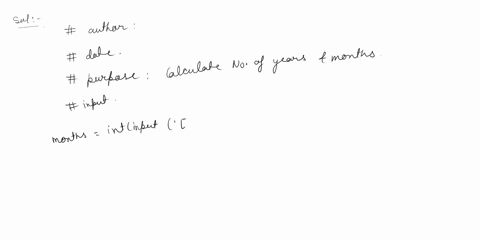 Sol:-
# author:
# date.
# purpose: Calculate No. of years & months.
# input.
months = int(input ('[